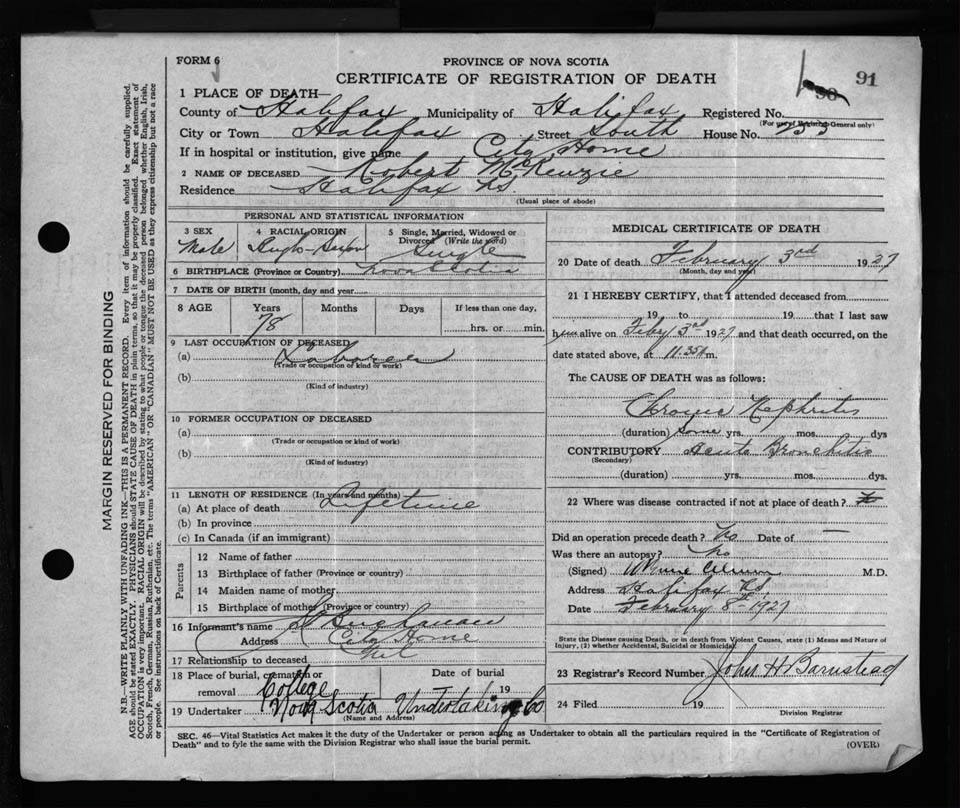 FORM 6
PROVINCE OF NOVA SCOTIA
CERTIFICATE OF REGISTRATION OF DEATH
91
1 PLACE OF DEATH—
County of Halifax Municipality of Halifax Registered No.
(For use of Registrar-General only)
City or Town Halifax Street South House No.
If in hospital or institution, give name City Home
2 NAME OF DECEASED Robert McKenzie
Residence Halifax NS
(Usual place of abode)
PERSONAL AND STATISTICAL INFORMATION
3 SEX Male
4 RACIAL ORIGIN Anglo-Saxon
5 Single, Married, Widowed or Divorced (Write the word) Single
6 BIRTHPLACE (Province or Country) Nova Scotia
7 DATE OF BIRTH (month, day and year)
8 AGE Years 78 Months Days If less than one day, hrs. or min.
9 LAST OCCUPATION OF DECEASED
(a) Laborer
(Trade or occupation or kind of work)
(b)
(Kind of industry)
10 FORMER OCCUPATION OF DECEASED
(a)
(Trade or occupation or kind of work)
(b)
(Kind of industry)
11 LENGTH OF RESIDENCE (In years and months)
(a) At place of death Lifetime
(b) In province
(c) In Canada (if an immigrant)
Parents
12 Name of father
13 Birthplace of father (Province or country)
14 Maiden name of mother
15 Birthplace of mother (Province or country)
16 Informant's name Buchanan
Address City Home
17 Relationship to deceased
18 Place of burial, cremation or removal College
Date of burial 19
19 Undertaker Nova Scotia Undertaking Co
(Name and Address)
MEDICAL CERTIFICATE OF DEATH
20 Date of death February 3rd 1927
(Month, day and year)
21 I HEREBY CERTIFY, that I attended deceased from
19 to 19 that I last saw
him alive on Feby 3rd 1927 and that death occurred, on
date stated above, at 11.35 m.
The CAUSE OF DEATH was as follows:
Chronic Nephritis
(duration) Some yrs. mos. dys
CONTRIBUTORY Acute Bronchitis
(Secondary)
(duration) yrs. mos. dys.
22 Where was disease contracted if not at place of death?
Did an operation precede death? No Date of —
Was there an autopsy? No
(Signed) M.D.
Address Halifax N.S.
Date February 8th 1927
State the Disease causing Death, or in death from Violent Causes, state (1) Means and Nature of
Injury, (2) whether Accidental, Suicidal or Homicidal
23 Registrar's Record Number John H Barnstead
24 Filed 19
Division Registrar
SEC. 46—Vital Statistics Act makes it the duty of the Undertaker or person acting as Undertaker to obtain all the particulars required in the "Certificate of Registration of
Death" and to fyle the same with the Division Registrar who shall issue the burial permit.
(OVER)
MARGIN RESERVED FOR BINDING
N.B.—WRITE PLAINLY WITH UNFADING INK—THIS IS A PERMANENT RECORD. Every item of information should be carefully supplied.
AGE should be stated EXACTLY. PHYSICIANS should STATE CAUSE OF DEATH in plain terms, so that it may be properly classified. Exact statement of
OCCUPATION is very important. RACIAL ORIGIN will be described by stating to what people or tongue the deceased person belonged whether English, Irish,
Scotch, French, German, Russian, Ruthenian, etc. The terms "AMERICAN" or "CANADIAN" MUST NOT BE USED as they express citizenship but not a race
or people. See instructions on back of Certificate.